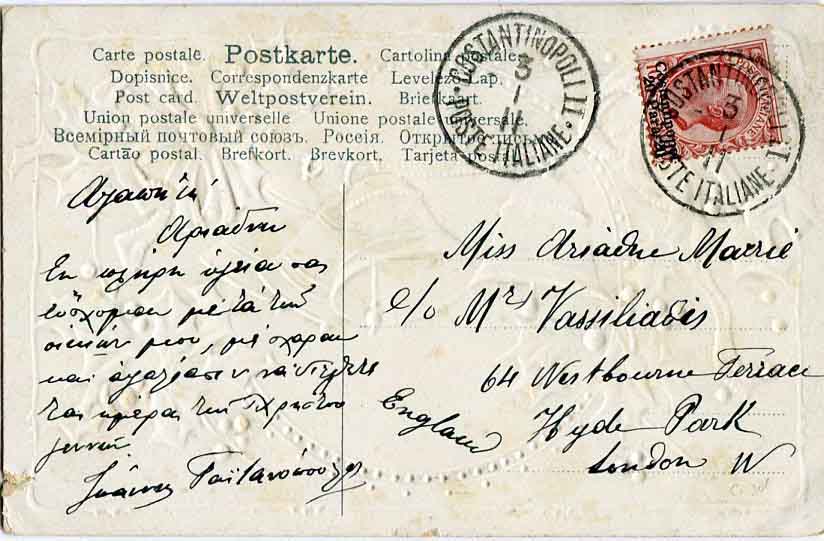 Carte postale. Postkarte. Cartolina postale.
Dopisnice. Correspondenzkarte Levelező-Lap.
Post card. Weltpostverein. Briefkaart.
Union postale universelle Unione postale universale.
Всемірный почтовый союзъ. Россія. Открытое письмо.
Cartão postal. Brefkort. Brevkort. Tarjeta postal.
COSTANTINOPOLI II
3
1
11
POSTE ITALIANE
COSTANTINOPOLI
3
1
11
POSTE ITALIANE
Αγαπητή
Αριάδνη
Εν πλήρη υγεία σας
εύχομαι μετά των
οικιών μου, μέ χαραν
και
τας ημέρας των Χρηστου
γεννων
Ιωάννης
Miss Ariadne
c/o Mrs Vassiliadis
64 Westbourne Terrace
Hyde Park
London W
England